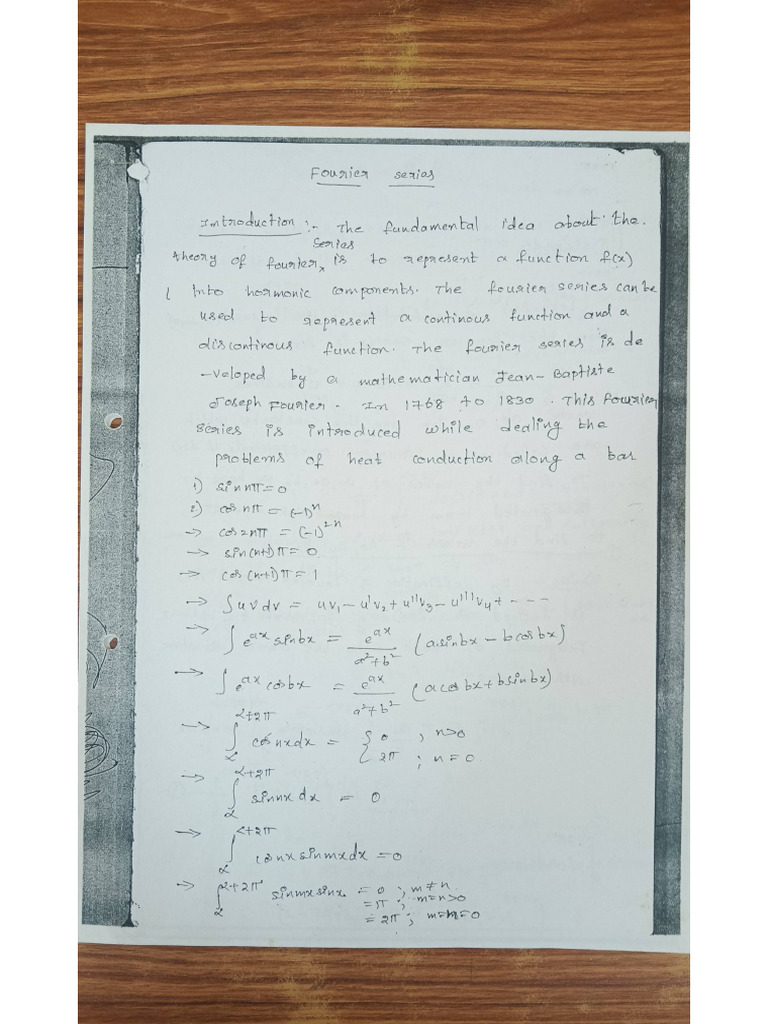 Fourier serias
Introduction :- The fundamental idea about the.
theory of fourier, series is to represent a function f(x)
into hormonic components. The fourier series can be
used to represent a continous function and a
discontinous function. The fourier series is de
-veloped by a mathematician Jean-Baptiste
Joseph Fourier. In 1768 to 1830. This Fourier
series is introduced while dealing the
problems of heat conduction along a bar
1) sin nπ = 0
2) cos nπ = (-1)^n
→ cos 2nπ = (-1)^2n
→ sin(n+1)π = 0
→ cos(n+1)π = 1
→ ∫uv dv = uv₁ - u'v₂ + u''v₃ - u'''v₄ + - - -
→ ∫e^ax sin bx = e^ax/(a²+b²) (a sin bx - b cos bx)
→ ∫e^ax cos bx = e^ax/(a²+b²) (a cos bx + b sin bx)
→ ∫_α^α+2π cos nx dx = { 0 ; n>0
2π ; n=0
→ ∫_α^α+2π sin nx dx = 0
→ ∫_α^α+2π cos nx sin mx dx = 0
→ ∫_α^α+2π sin mx sin nx = 0 ; m≠n
= π ; m=n>0
= 2π ; m=n=0